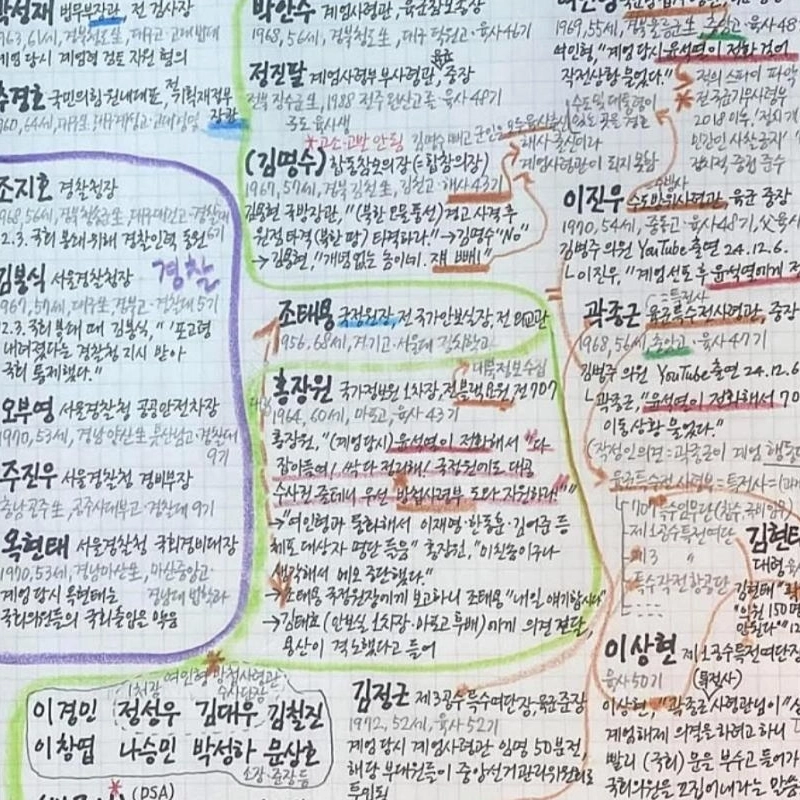 박성재 법무부장관, 전 검사장
1963, 61세, 경북청도生, 대구고·고대법대
계엄 당시 계엄령 검토 지원 혐의
추경호 국민의힘 원내대표, 전 기획재정부
장관
1960, 64세, 대구生, 대구계성고·고대경영
조지호 경찰청장
1968, 56세, 경북청송生, 대구대건고·경찰대
6기
12.3. 국회 봉쇄 위해 경찰인력 동원
경찰
김봉식 서울경찰청장
1967, 57세, 대구生, 경북고·경찰대 5기
12.3. 국회 봉쇄 때 김봉식, "포고령
내려졌다는 경찰청 지시 받아
국회 통제했다."
오부명 서울경찰청 공공안전차장
1970, 53세, 경남양산生, 경찰대
9기
주진우 서울경찰청 경비부장
충남공주生, 공주사대부고·경찰대 9기
목현태 서울경찰청 국회경비대장
1970, 53세, 경남마산生, 마산중앙고·
경남대 법학과
계엄 당시 목현태는
국회의원들의 국회출입은 막음
박안수 계엄사령관, 육군참모총장
1968, 56세, 경북청도生, 대구 덕원고·육사46기
정진팔 계엄사령부 부사령관, 중장
전북 장수군生, 1988 전주 완산고 졸·육사 48기
*고소·고발 안됨
김명수 빼고 군인은 모두 육사출신
해사 출신이라
계엄사령관이 되지 못함
(김명수) 합동참모의장 (=합참의장)
1967, 57세, 경북 김천生, 김천고·해사 43기
김용현 국방장관, "(북한 오물풍선) 경고 사격 후
원점타격(북한 땅) 타격하라." →김명수 "No"
→김용현, "개념 없는 놈이네. 쟤 빼!"
조태용 국정원장, 전 국가안보실장, 전 외교관
1956, 68세, 경기고·서울대 정치학과
대북정보수집
홍장원 국가정보원 1차장, 전 블랙요원, 전 707
1964, 60세, 마포고, 육사 43기
홍장원, "(계엄당시) 윤석열이 전화해서 "다
잡아들여! 싹 다 정리해! 국정원에도 대공
수사권 줄테니 우선 방첩사령부 도와 지원하라!""
→"여인형과 통화해서 이재명·한동훈·김어준 등
체포 대상자 명단 들음" 홍장원, "미친놈이구나
생각해서 메모 중단했다."
→조태용 국정원장에게 보고하니 조태용 "내일 얘기합시다"
→김태효 (안보실 1차장·마포고 후배)에게 의견 전달,
용산이 격노했다고 들어
여인형 방첩사령관
1처장
수사단장
이경민 정성우 김대우 김철진
이창엽 나승민 박성하 문상호
소장·준장 등
(DSA)
김정근 제3공수특수여단장, 육군준장
1972, 52세, 육사 52기
계엄 당시 계엄사령관 임명 50분전,
해당 부대원들이 중앙선거관리위원회로
투입됨
1969, 55세, 경북울릉군生, 중앙고·육사48기
여인형, "계엄 당시 윤석열이 전화 걸어
작전상황 물었다."
전 국군기무사령부
2018 이후,
민간인 사찰 금지
정치적 중립 준수
이진우 수도방위사령관, 육군 중장
수방사
1970, 54세, 중동고·육사48기, 父육사
김병주 의원 YouTube 출연 24.12.6.
ㄴ이진우, "계엄선포 후 윤석열에게 전
(=특전사)
곽종근 육군특수전사령관, 중장
1968, 56세, 충남고·육사47기
김병주 의원 YouTube 출연 24.12.6
ㄴ곽종근, "윤석열이 전화해서 70
이동상황 물었다."
(작전인의견=곽종근이 계엄 행동대
육군특수전사령부=특전사=
707 특수임무단
제1공수특전여단
제3 "
특수작전항공단
김현태
대령
김현태 "
"의원 150명
안된다"
이상현 제1공수특전여단장
(특전사)
육사 50기
이상현, "곽종근 사령관님이
계엄해제 의결을 하려고 하니
빨리 (국회) 문을 부수고 들어가
국회의원을 끄집어내라는 말씀